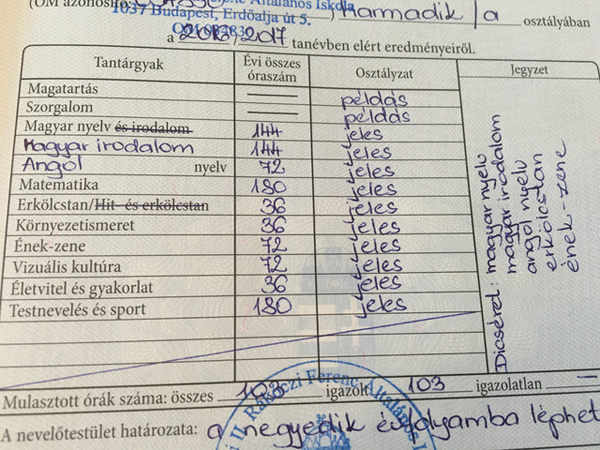 1037 Budapest, Erdőalja út 5.
harmadik / a osztályában
a 2016/2017 tanévben elért eredményeiről.
Tantárgyak Évi összes óraszám Osztályzat Jegyzet
Magatartás — példás
Szorgalom — példás
Magyar nyelv és irodalom 144 jeles
Magyar irodalom 144 jeles
Angol nyelv 72 jeles
Matematika 180 jeles
Erkölcstan/Hit- és erkölcstan 36 jeles
Környezetismeret 36 jeles
Ének-zene 72 jeles
Vizuális kultúra 72 jeles
Életvitel és gyakorlat 36 jeles
Testnevelés és sport 180 jeles
Dicséret: magyar nyelv
magyar irodalom
angol nyelv
erkölcstan
ének-zene
Mulasztott órák száma: összes 103 igazolt 103 igazolatlan —
A nevelőtestület határozata: a negyedik évfolyamba léphet
II. Rákóczi Ferenc Általános